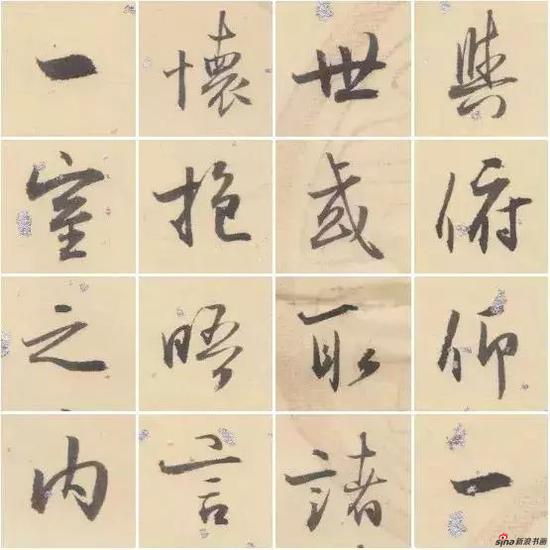 與俯仰一
世或取諸
懷抱晤言
一室之内
sina新浪书画